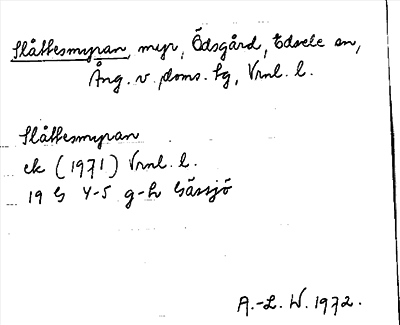 Slåttesmyran, myr, Ödsgård, Edsele sn,
Ång. v. doms. tg, Vrnl. l.
Slåttesmyran
ek (1971) Vrnl. l.
19 G 4-5 g-h Gåssjö
A.-L. W. 1972.